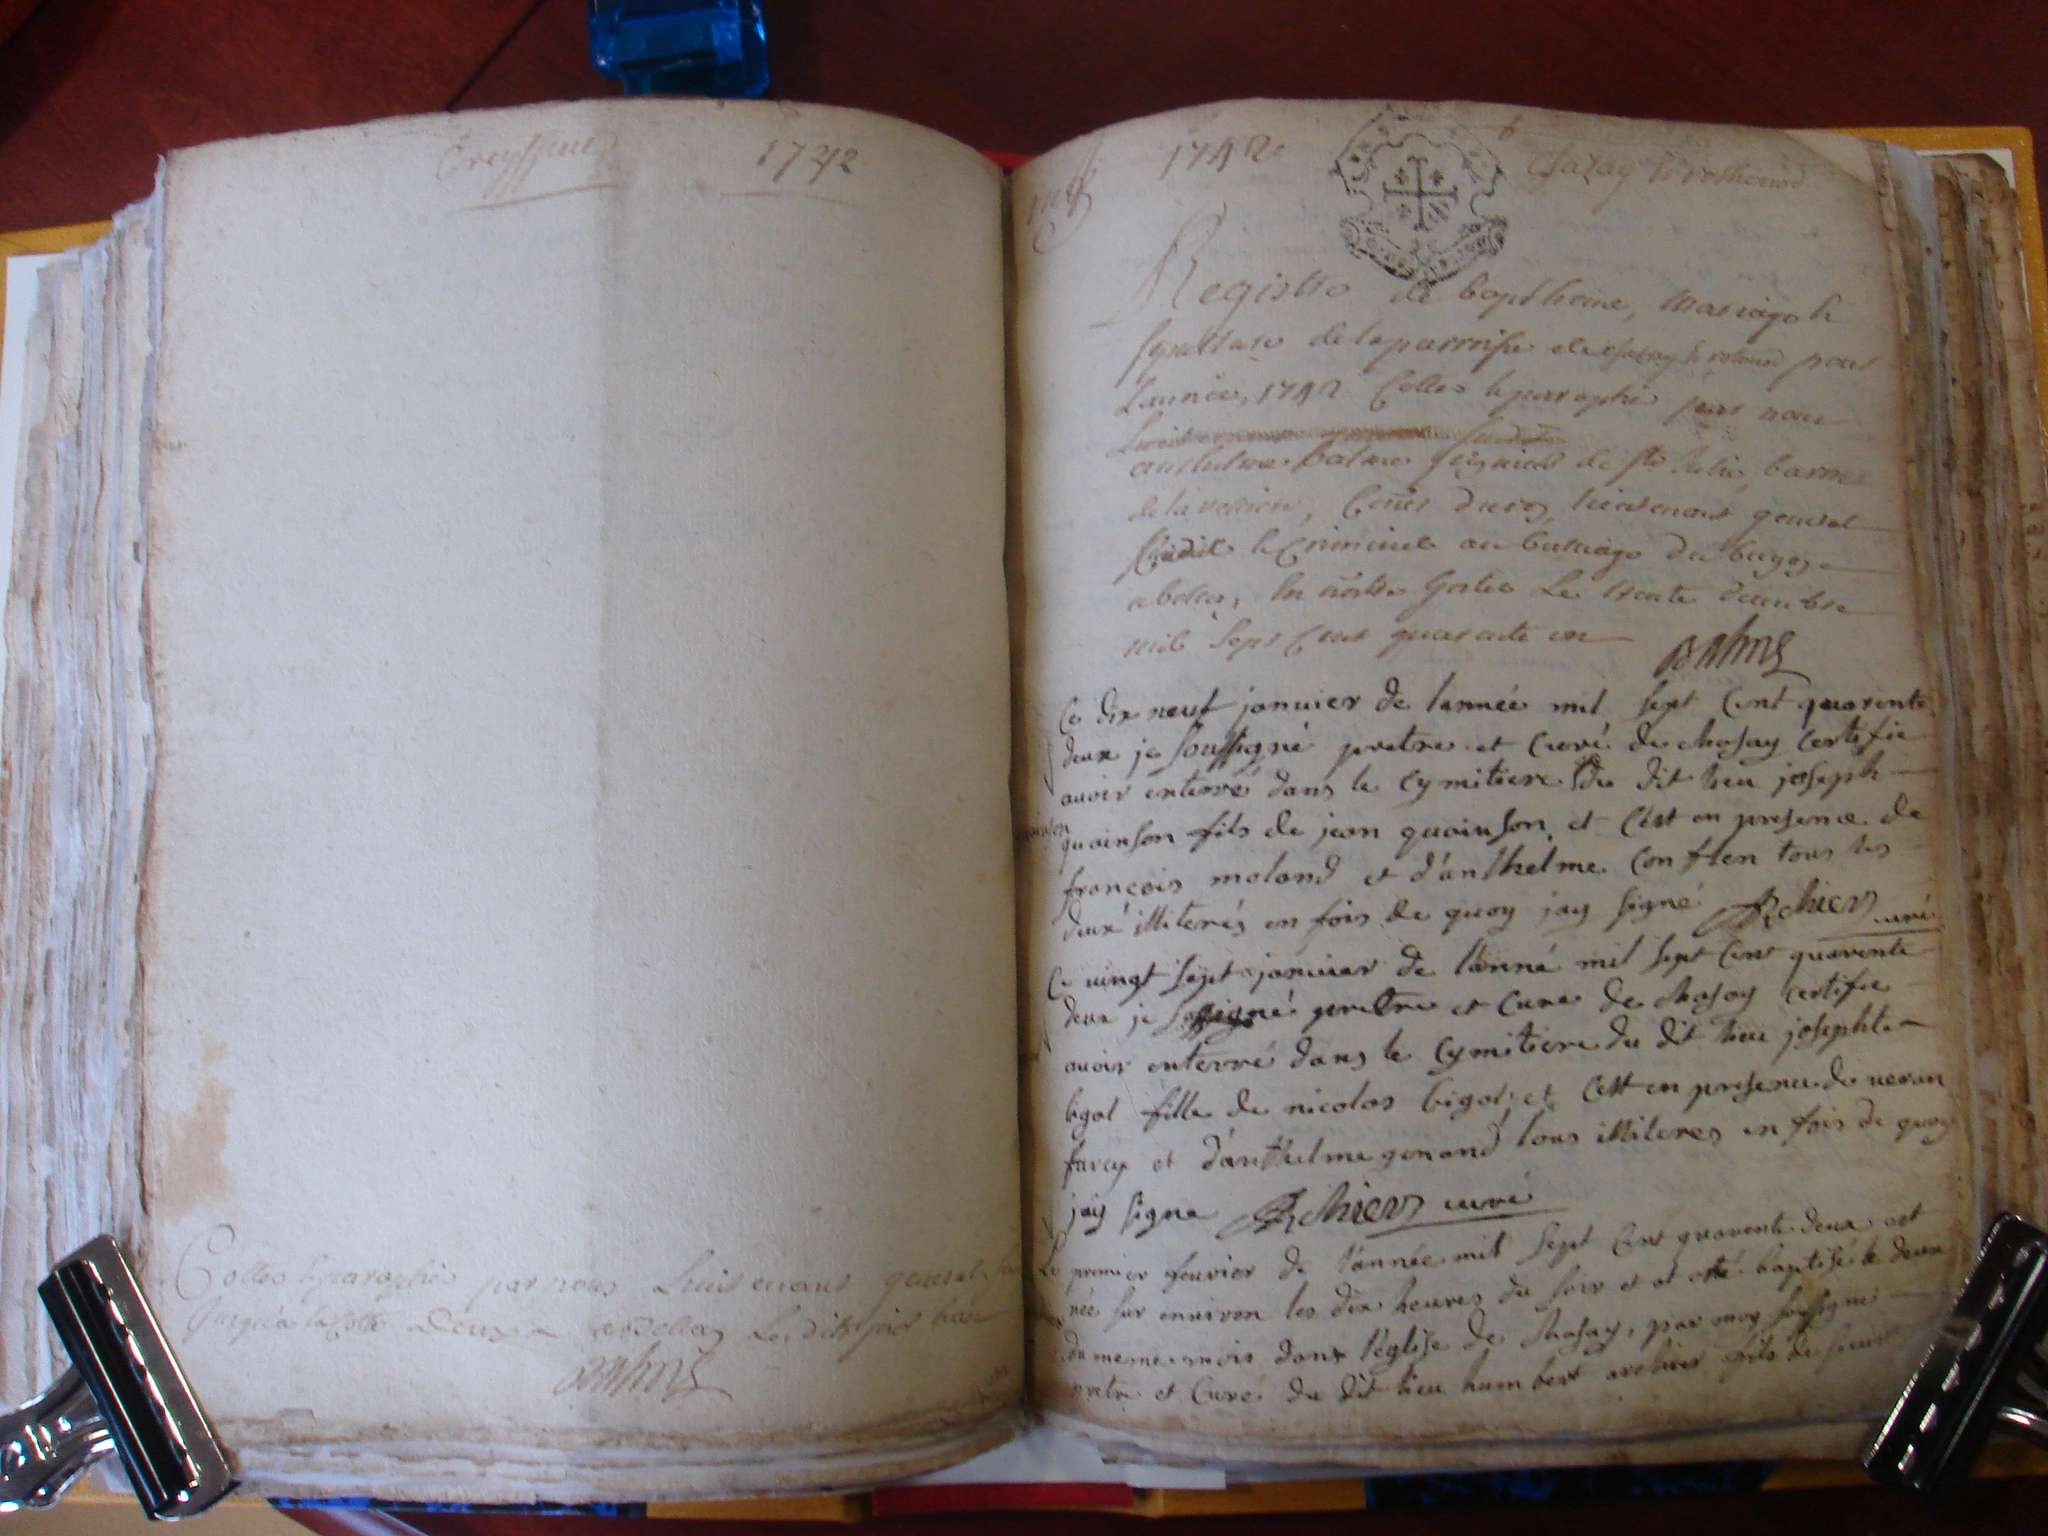 Treyffieu 1742
Cottes & paraphés par nous Lieutenant general
jusqu'à la Cotte Deux a Belley Les dits jour & an
Balme
1742
6
Chazay
Registre de baptheme, Mariage &
sepulture de la parroisse de pour
L'année, 1742 Cottes & paraphé par nous
anthelme balme seigneur de Ste Julie, baron
de la Conser du roy, Lieutenant general
Civil & Criminel au bailliage du bugey
a belley, En nostre hostel Le trente decembre
mil Sept Cent quarante un
Balme
Ce dix neuf janvier de lannée mil sept Cent quarente
deux je soussigné pretre et Curé de chasay certifie
avoir enterré dans le cymitiere du dit lieu joseph
quoinson fils de jean quoinson et c'est en presence de
françois moland et d'anthelme tous les
deux illiterés en fois de quoy jay signé Rchier curé
Ce vingt sept janvier de lanné mil sept Cent quarente
deux je soussigné pretre et Cure de chasay certifie
avoir enterré dans le cymitiere du dit lieu josephte
bigot fille de nicolas bigot et c'est en presence de veran
farcy et d'anthelme gonand tous illiteres en fois de quoy
jay signe Rchier curé
Le premier feuvrier de l'année mil sept Cent quarente deux est
née sur environ les dix heures du soir et at eté baptisé le deux
du meme mois dans l'église de chasay, par moy soussigné
pretre et Curé du dit lieu humbert archier fils de sieur